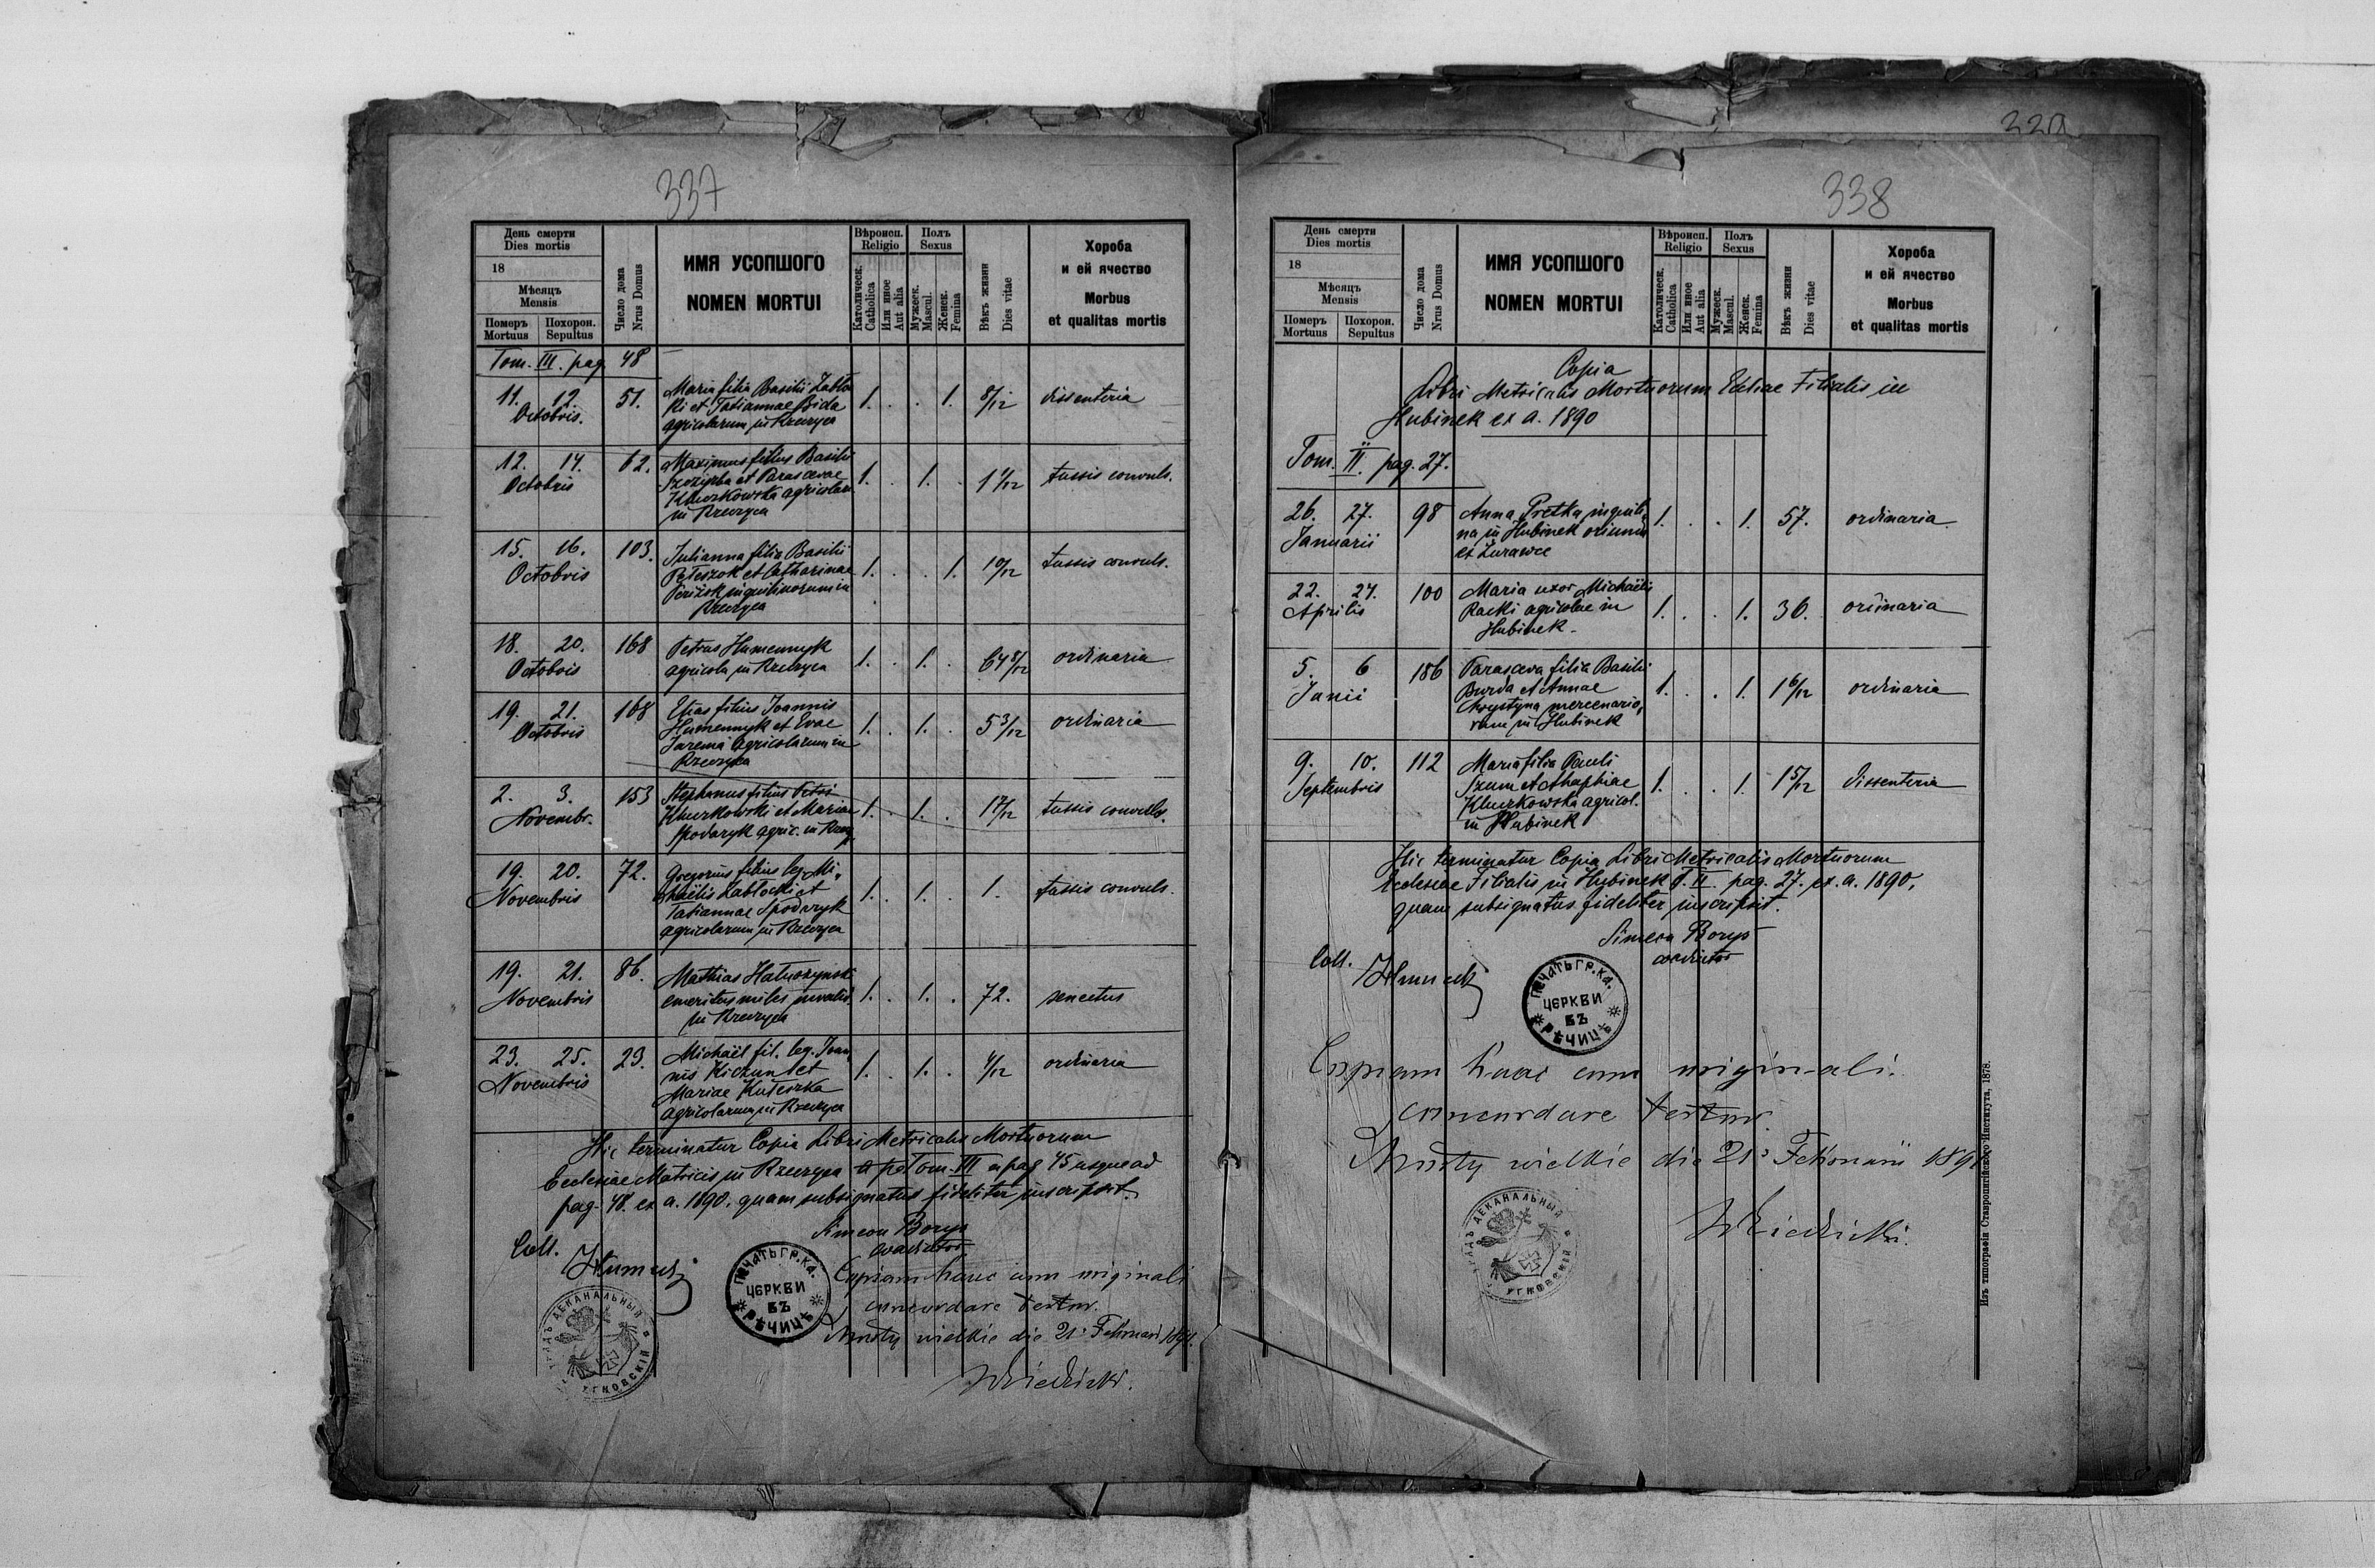 337
День смерти
Dies mortis
18
Мѣсяцъ
Mensis
Померъ
Mortuus
Похорон.
Sepultus
Число дома
Nrus Domus
ИМЯ УСОПШОГО
NOMEN MORTUI
Вѣроисп.
Religio
Католическ.
Catholica
Или иное
Aut alia
Полъ
Sexus
Мужеск.
Mascul.
Женск.
Femina
Вѣкъ жизни
Dies vitae
Хороба
и ей ячество
Morbus
et qualitas mortis
Tom. III. pag. 48
11. 12. 51. Maria filia Basilii Zabło 1. . . 1. 8/12 dissenteria
Octobris.
cki et Tatiannae Bida
agricolarum in Rzeczyca
12. 14. 62. Maximus filius Basilii 1. . 1. . 1 1/12 tussis convuls.
Octobris
et Parascevae
Kluczkowska agricolarum
in Rzeczyca
15. 16. 103. Julianna filia Basilii 1. . . 1. 10/12 tussis convuls.
Octobris
et Catharinae
inquilinorum in
Rzeczyca
18. 20. 168 Petrus Humennyk 1. . 1. . 64 8/12 ordinaria
Octobris
agricola in Rzeczyca
19. 21. 168 Elias filius Joannis 1. . 1. . 5 3/12 ordinaria
Octobris
Humennyk et Evae
Jarema agricolarum in
Rzeczyca
2. 3. 153 Stephanus filius Petri 1. . 1. . tussis convuls.
Novembr.
Kluczkowski et Mariae
Spodaryk agric. in Rzecz.
19. 20. 72. Gregorius filius leg. Mi- 1. . 1. . 1. tussis convuls.
Novembris
chaëlis Zabłocki et
Tatiannae Spodaryk
agricolarum in Rzeczyca
19. 21. 86. Mathias 1. . 1. . 72. senectus
Novembris
emeritus miles invalid.
in Rzeczyca
23. 25. 23. Michaël fil. leg. Joan 1. . 1. . ordinaria
Novembris
nis Kiczun et
Mariae Kuteszka
agricolarum in Rzeczyca
Hic terminatur Copia Libri Metricalis Mortuorum
Ecclesiae Matricis in Rzeczyca Tom. III a pag 45 usque ad
pag. 48. ex a. 1890. quam subsignatus fideliter inscripsit.
Simeon Borys
coadiutor
Coll.
ПЕЧАТЬ ГР.КА.
ЦЕРКВИ
ВЪ
РѢЧИЦѢ
Copiam hanc cum originali
concordare testor.
Mosty wielkie die 21. Februarii 1891.
ДЕКАНАЛЬНЫЙ
УГНОВСКІЙ
338
День смерти
Dies mortis
18
Мѣсяцъ
Mensis
Померъ
Mortuus
Похорон.
Sepultus
Число дома
Nrus Domus
ИМЯ УСОПШОГО
NOMEN MORTUI
Вѣроисп.
Religio
Католическ.
Catholica
Или иное
Aut alia
Полъ
Sexus
Мужеск.
Mascul.
Женск.
Femina
Вѣкъ жизни
Dies vitae
Хороба
и ей ячество
Morbus
et qualitas mortis
Copia
Libri Metricalis Mortuorum Eccliae Filialis in
Hubinek ex a. 1890
Tom. II. pag. 27.
26. 27. 98 Anna Pretka inquili- 1. . . 1. 57. ordinaria
Januarii
na in Hubinek oriunda
ex Zurawce
22. 24. 100 Maria uxor Michaëlis 1. . . 1. 36. ordinaria
Aprilis
Racki agricolae in
Hubinek.
5. 6 186 Parasceva filia Basilii 1. . . 1. 1 6/12 ordinaria
Junii
Burda et Annae
Chrystyna mercenario-
rum in Hubinek
9. 10. 112 Maria filia Pauli 1. . . 1. 1 5/12 dissenteria
Septembris
Szum et Agaphiae
Kluczkowska agricol.
in Hubinek
Hic terminatur Copia Libri Metricalis Mortuorum
Ecclesiae Filialis in Hubinek T. II. pag. 27. ex. a. 1890,
quam subsignatus fideliter inscripsit.
Simeon Borys
coadiutor
Coll.
ПЕЧАТЬ ГР.КА.
ЦЕРКВИ
ВЪ
РѢЧИЦѢ
Copiam hanc cum originali
concordare testor.
Mosty wielkie die 21. Februarii 1891
ДЕКАНАЛЬНЫЙ
УГНОВСКІЙ
Изъ типографіи Ставропигійского Института, 1878.